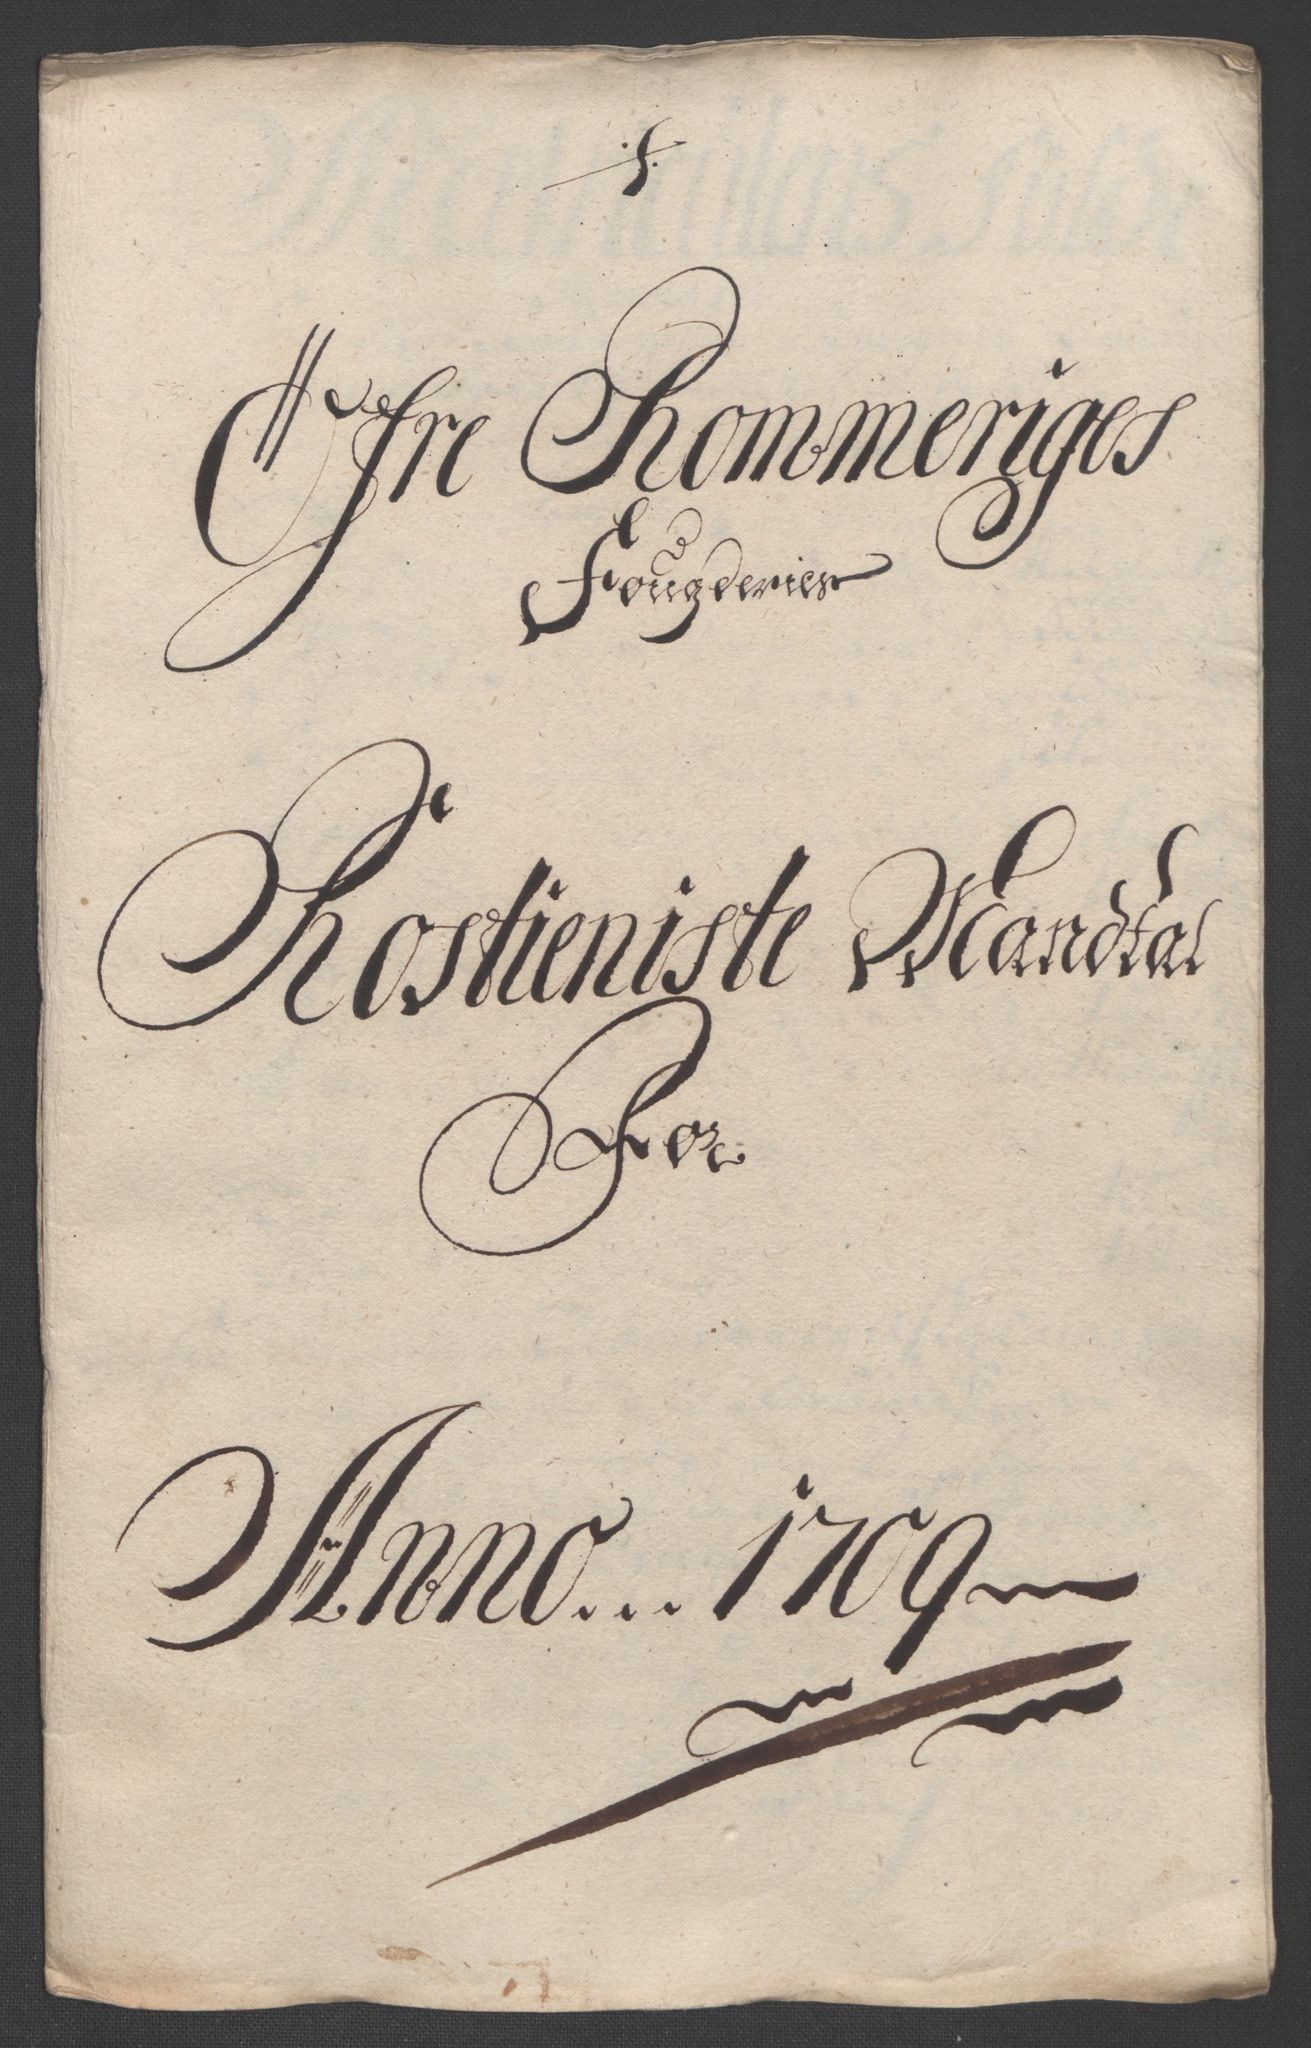 Øfre Rommeriges
Fougderies
Rostieniste Mandtal
For
Anno... 1709